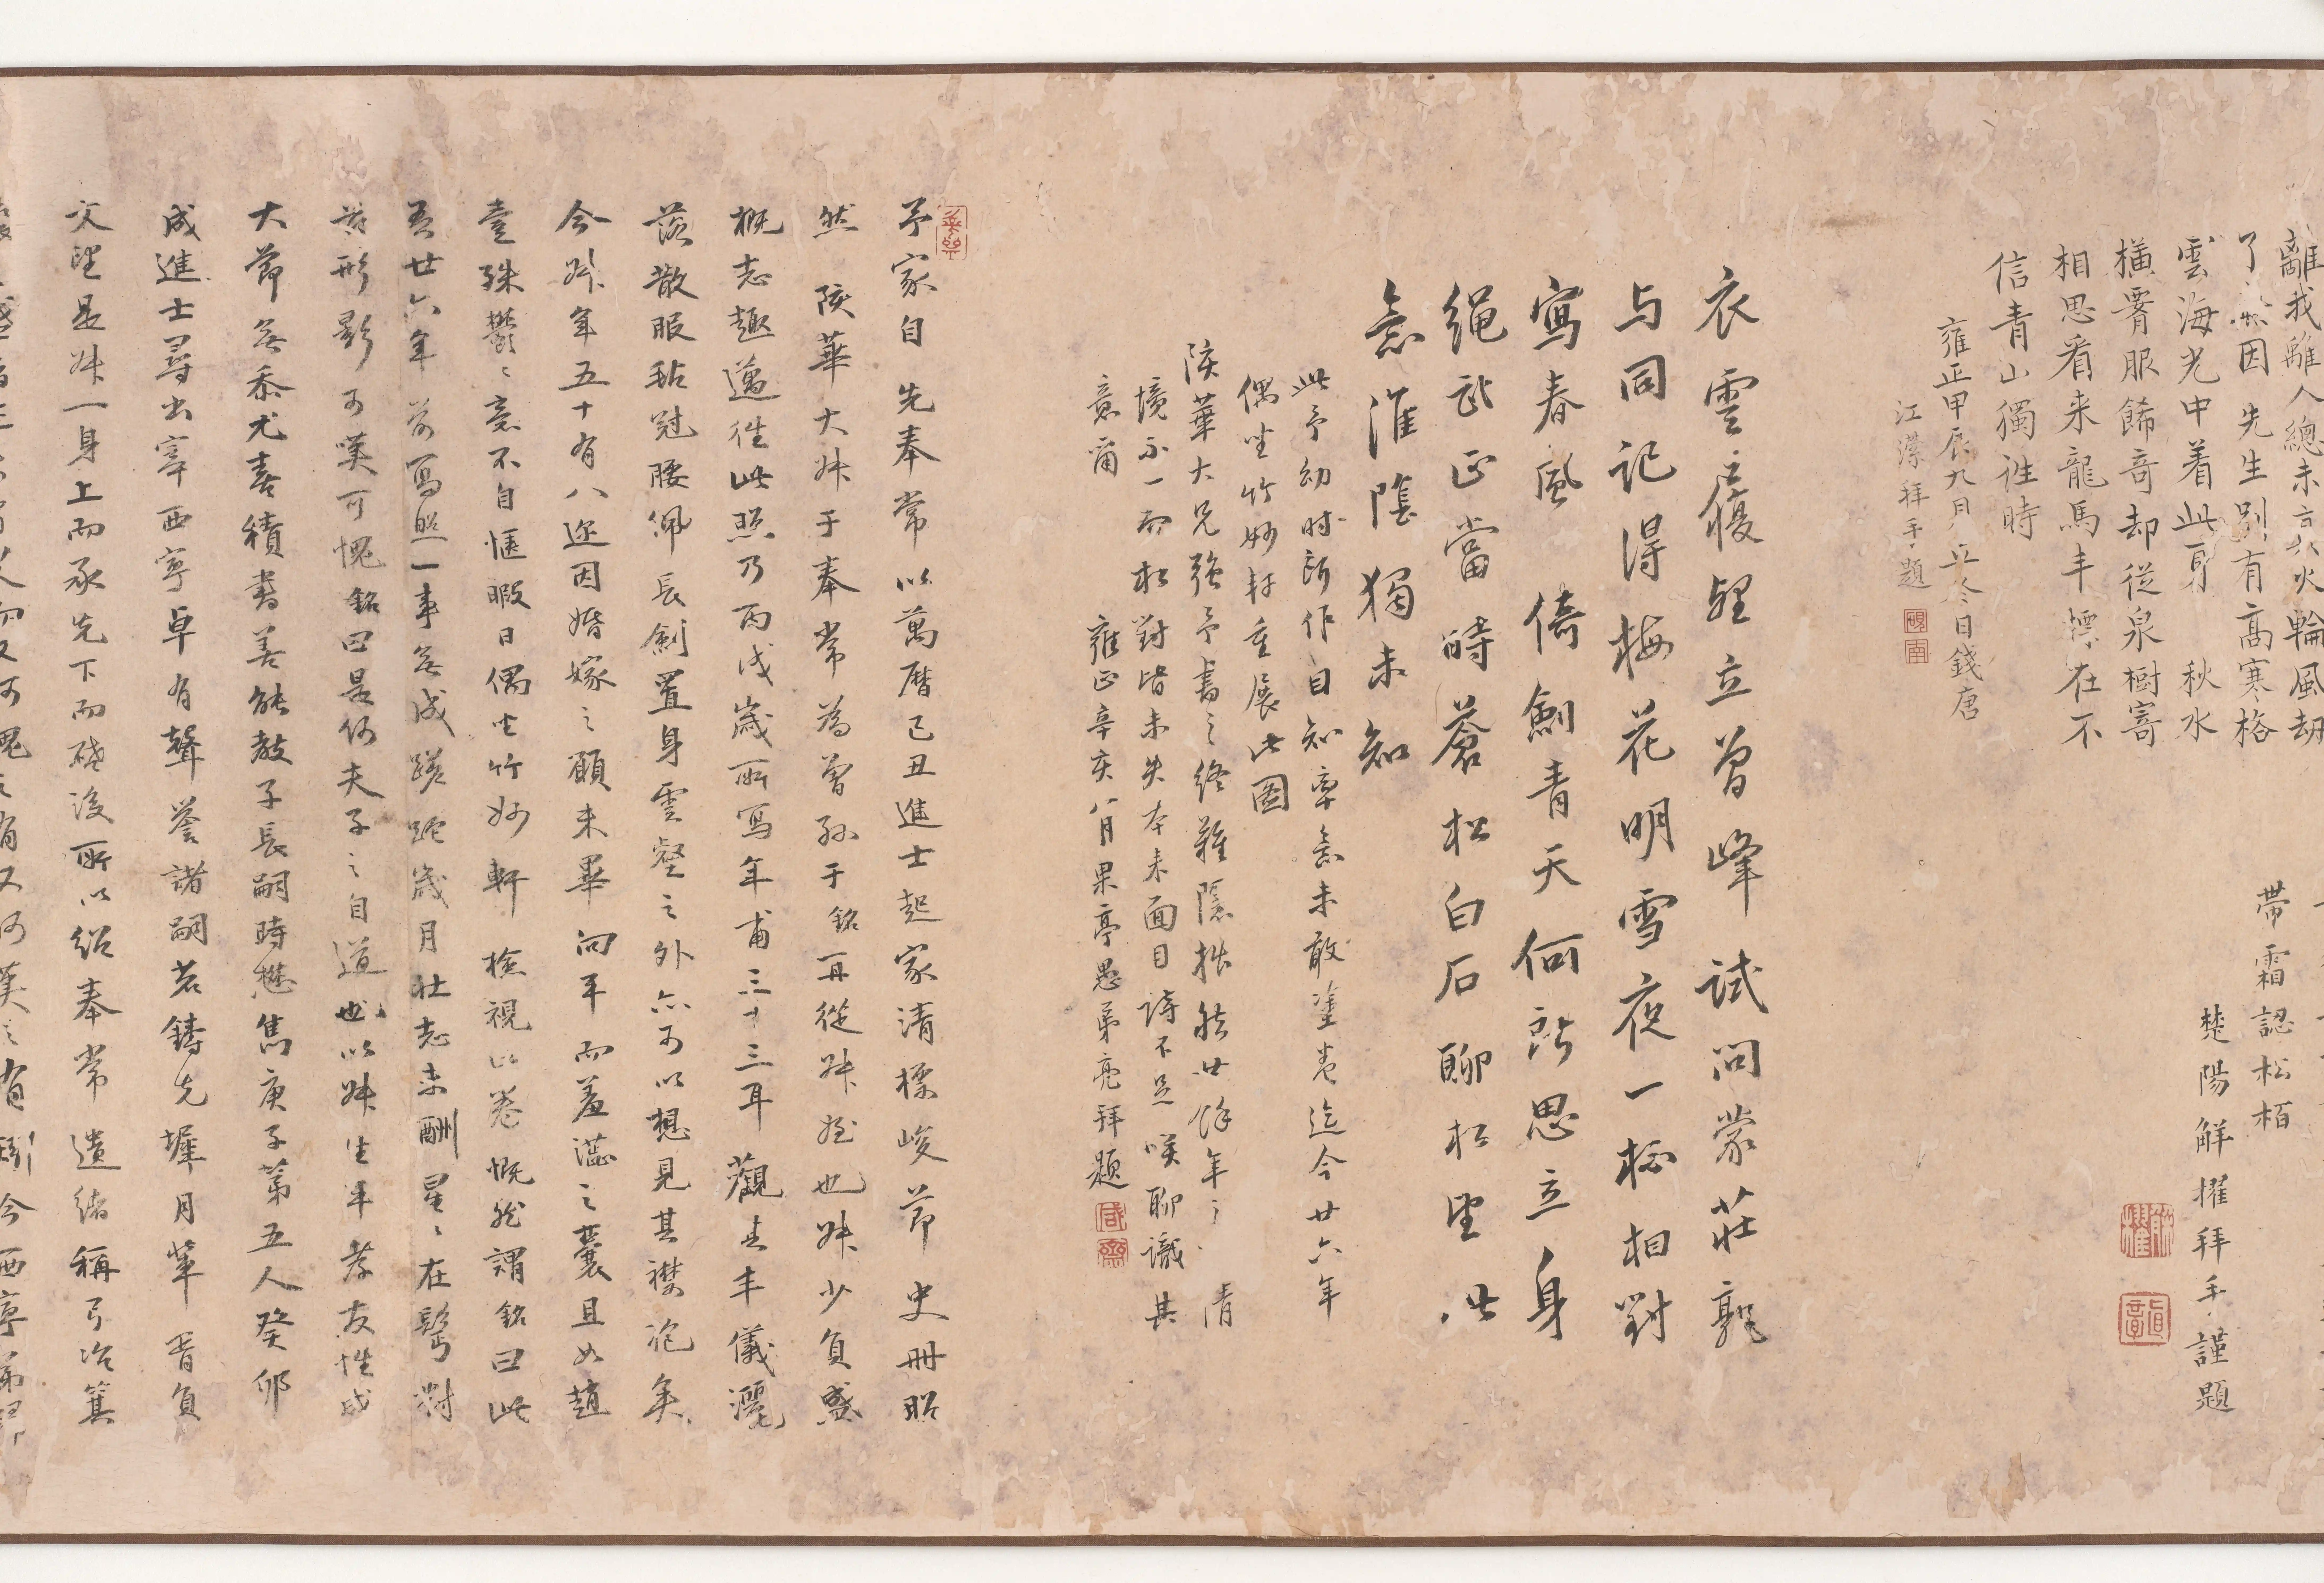 離我離人總未言於火輪風劫
了然因 先生別有高寒格
雲海光中着此身 秋水
橫胥服餙奇却從泉樹寄
相思看来龍馬丰標在不
信青山獨往時
雍正甲辰九月立冬日錢唐
江澐拜手題
帶霜認松栢
楚陽解擢拜手謹題
衣雲履壁立曾峰試問蒙莊郭
与同記得梅花明雪夜一樽相對
寫春風 倚劍青天何所思立身
繩武正當時蒼松白石聊相望此
意淮陰獨未知
此予幼時所作自知率意未敢塗卷迄今廿六年
偶坐竹妙軒重展此圖
陔華大兄強予書之終難隱拙然廿餘年之 情
境不一而松對皆未失本來面目詩不足咲聊識其
意爾 雍正辛亥八月果亭愚弟亮拜題
予家自 先奉常以萬曆己丑進士起家清標峻節史冊昭
然 陔華大姊于奉常為曾孫于銘再從姊姪也姊少負盛
概志趣邁往此照乃丙戌歲所寫年甫三十三耳觀其丰儀灑
落散服毡冠腰佩長劍置身雲壑之外亦可以想見其襟袍矣
今姊年五十有八迩因婚嫁之願未畢向平而羞澁之囊且如趙
壹殊鬱鬱意不自愜暇日偶坐竹妙軒 檢視此卷慨然謂銘曰此
吾廿六年前寫照一事無成蹉跎歲月壯志未酬星星在鬢對
茲形影可嘆可愧銘曰是何夫子之自道也以姊生平孝友性成
大節無忝尤喜積書善能教子長嗣時懋雋庚子第五人癸卯
成進士尋出宰西寧卓有聲譽諸嗣若鑄先墀月筆 胥負
文望是姊一身上而承先下而啟後所以紹奉常 遺緒稱弓冶箕